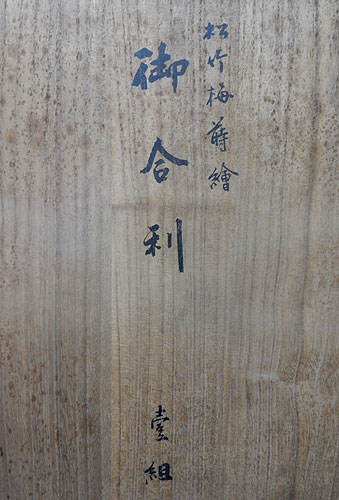 松竹梅蒔繪
御合利
壹組